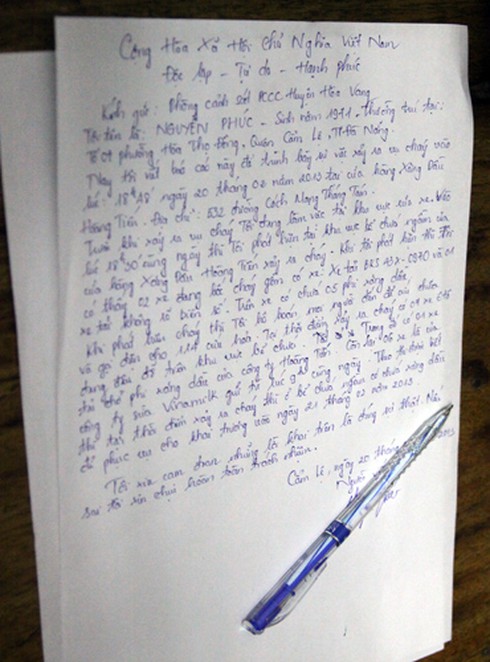 Cộng Hòa Xã Hội Chủ Nghĩa Việt Nam
Độc lập - Tự do - Hạnh phúc
Kính gửi: Phòng cảnh sát PCCC Huyện Hòa Vang
Tôi tên là: NGUYỄN PHÚC - Sinh năm 1971 - Thường trú tại:
Tổ 01 phường Hòa Thọ Đông, Quận Cẩm Lệ, TP Đà Nẵng.
Nay tôi viết báo cáo này để trình bày sự việc xảy ra vụ cháy vào
lúc: 18h48' ngày 20 tháng 02 năm 2013 tại cửa hàng Xăng Dầu
Hoàng Tiến. Địa chỉ: 532 đường Cách Mạng Tháng Tám.
Trước khi xảy ra vụ cháy Tôi đang làm việc tại khu vực rửa xe. Vào
lúc 18h30 cùng ngày thì Tôi phát hiện tại khu vực bể chứa ngầm của
cửa hàng Xăng Dầu Hoàng Tiến xảy ra cháy. Khi tôi phát hiện thì
có thấy 02 xe đang bốc cháy gồm có xe: Xe tải BKS 43X-0970 và 01
xe tải không có biển số. Trên xe có chứa 05 phi xăng dầu.
Khi phát hiện cháy thì Tôi hô hoán mọi người đến để cứu chữa
và gọi điện cho 114 cứu hỏa. Tại thời điểm xảy ra cháy có 04 xe ô tô
đang đậu đỗ trên khu vực bể chứa. Trong đó có 01 xe
tải chở phi xăng dầu của công ty Hoàng Tiến. Còn lại 03 xe là của
công ty sữa Vinamilk gửi từ lúc ngày. Theo tôi được biết
thì tại thời điểm xảy ra cháy thì ở bể chứa ngầm có chứa xăng dầu
để phục vụ cho khai trương vào ngày 21 tháng 02 năm 2013.
Tôi xin cam đoan những lời khai trên là đúng sự thật. Nếu
sai tôi xin chịu hoàn toàn trách nhiệm.
Cẩm Lệ, ngày 20 tháng
Người